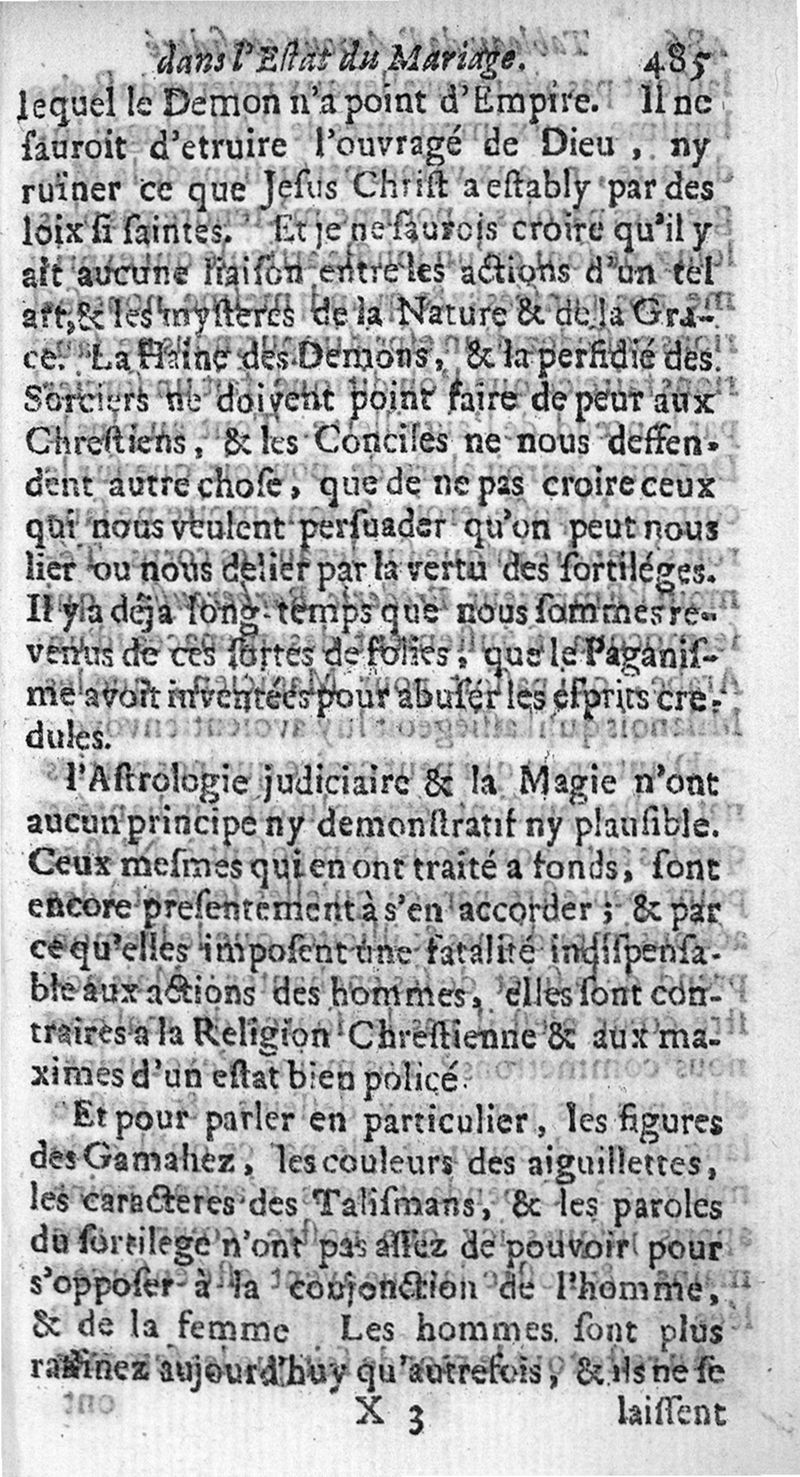 dans l'Eſtat du Mariage. 485
lequel le Demon n'a point d'Empire. Il ne
ſauroit d'etruire l'ouvragé de Dieu, ny
ruiner ce que Jeſus Chriſt a eſtably par des
loix ſi ſaintes. Et je ne ſaurois croire qu'il y
ait aucune liaiſon entre les actions d'un tel
art, & les myſteres de la Nature & de la Gra-
ce. La Haine des Demons, & la perfidié des
Sorciers ne doivent point faire de peur aux
Chreſtiens, & les Conciles ne nous deffen-
dent autre choſe, que de ne pas croire ceux
qui nous veulent perſuader qu'on peut nous
lier ou nous delier par la vertu des ſortiléges.
Il y a déja long-temps que nous ſommes re-
venus de ces ſortes de folies, que le Paganiſ-
me avoit inventées pour abuſer les eſprits cre-
dules.
l'Aſtrologie judiciaire & la Magie n'ont
aucun principe ny demonſtratif ny plauſible.
Ceux meſmes qui en ont traité a fonds, ſont
encore preſentement à s'en accorder; & par
ce qu'elles impoſent une fatalité indiſpenſa-
ble aux actions des hommes, elles ſont con-
traires a la Religion Chreſtienne & aux ma-
ximes d'un eſtat bien policé.
Et pour parler en particulier, les figures
des Gamahez, les couleurs des aiguillettes,
les caracteres des Taliſmans, & les paroles
du ſortilege n'ont pas aſſez de pouvoir pour
s'oppoſer à la conjonction de l'homme,
& de la femme Les hommes. ſont plus
raffinez aujourd'huy qu'autrefois, & ils ne ſe
X 3 laiſſent